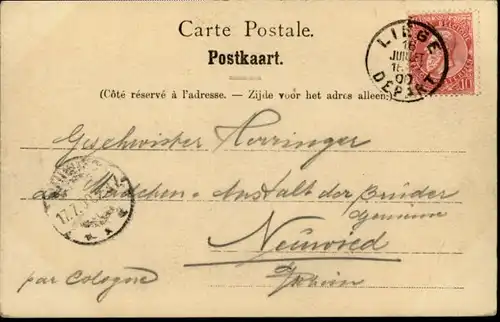 Carte Postale.
Postkaart.
(Côté réservé à l'adresse. — Zijde voor het adres alleen.)
BELGIQUE
10
LIEGE
16
JUILLET
DEPART
Geschwister Horringer
Mädchen-Anstalt der Brüder
Gemeine
Neuwied
a/Rhein
par Cologne
17.7.